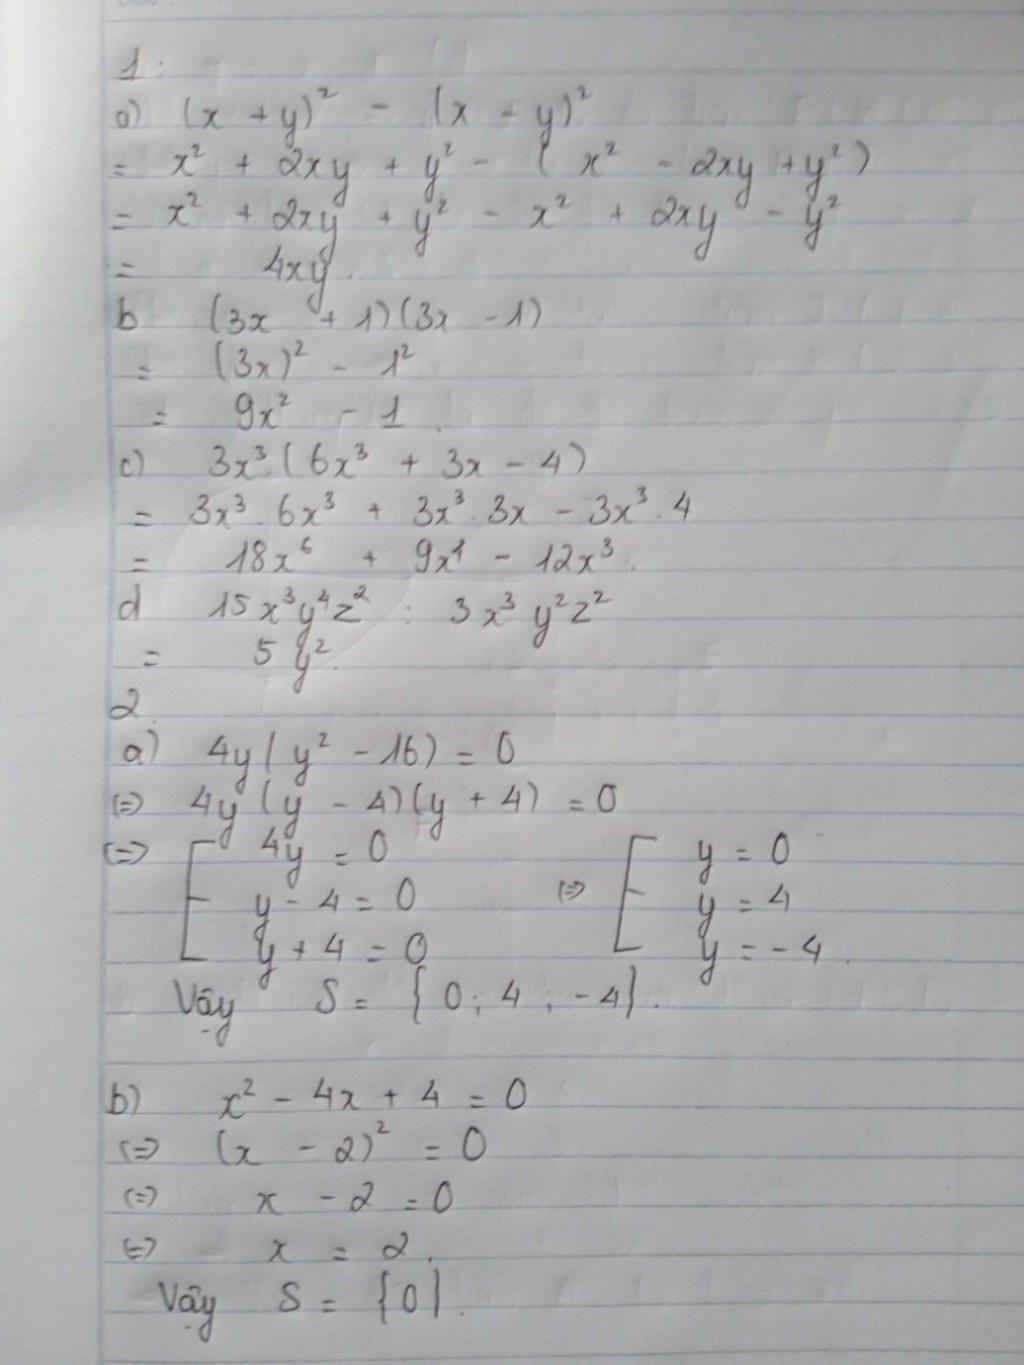 1:
a) (x + y)² - (x - y)²
= x² + 2xy + y² - (x² - 2xy + y²)
= x² + 2xy + y² - x² + 2xy - y²
= 4xy.
b (3x + 1)(3x - 1)
= (3x)² - 1²
= 9x² - 1.
c) 3x³(6x³ + 3x - 4)
= 3x³.6x³ + 3x³.3x - 3x³.4
= 18x⁶ + 9x⁴ - 12x³.
d 15x³y⁴z² : 3x³y²z²
= 5y².
2.
a) 4y(y² - 16) = 0
(=) 4y(y - 4)(y + 4) = 0
(=) [ 4y = 0 (=) [ y = 0
y - 4 = 0 y = 4
y + 4 = 0 y = -4.
Vậy S = {0; 4; -4}.
b) x² - 4x + 4 = 0
(=) (x - 2)² = 0
(=) x - 2 = 0
(=) x = 2.
Vậy S = {0}.